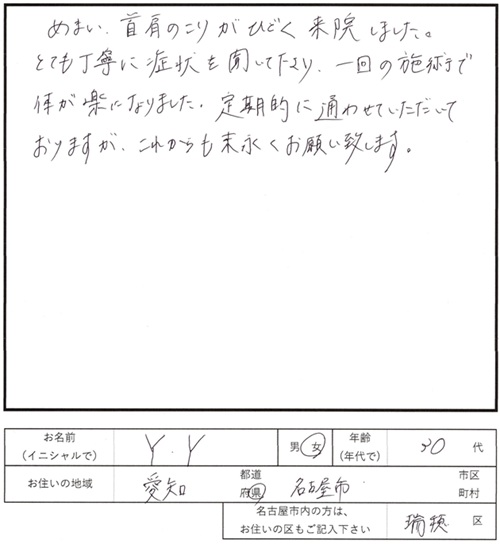 めまい、首肩のこりがひどく来院しました。
とても丁寧に症状を聞いて下さり、一回の施術で
体が楽になりました。定期的に通わせていただいて
おりますが、これからも末永くお願い致します。
お名前
(イニシャルで)
Y.Y
男 女
年齢
(年代で)
代
お住いの地域
愛知
都道
府県
名古屋市
市区
町村
名古屋市内の方は、
お住いの区もご記入下さい
瑞穂 区